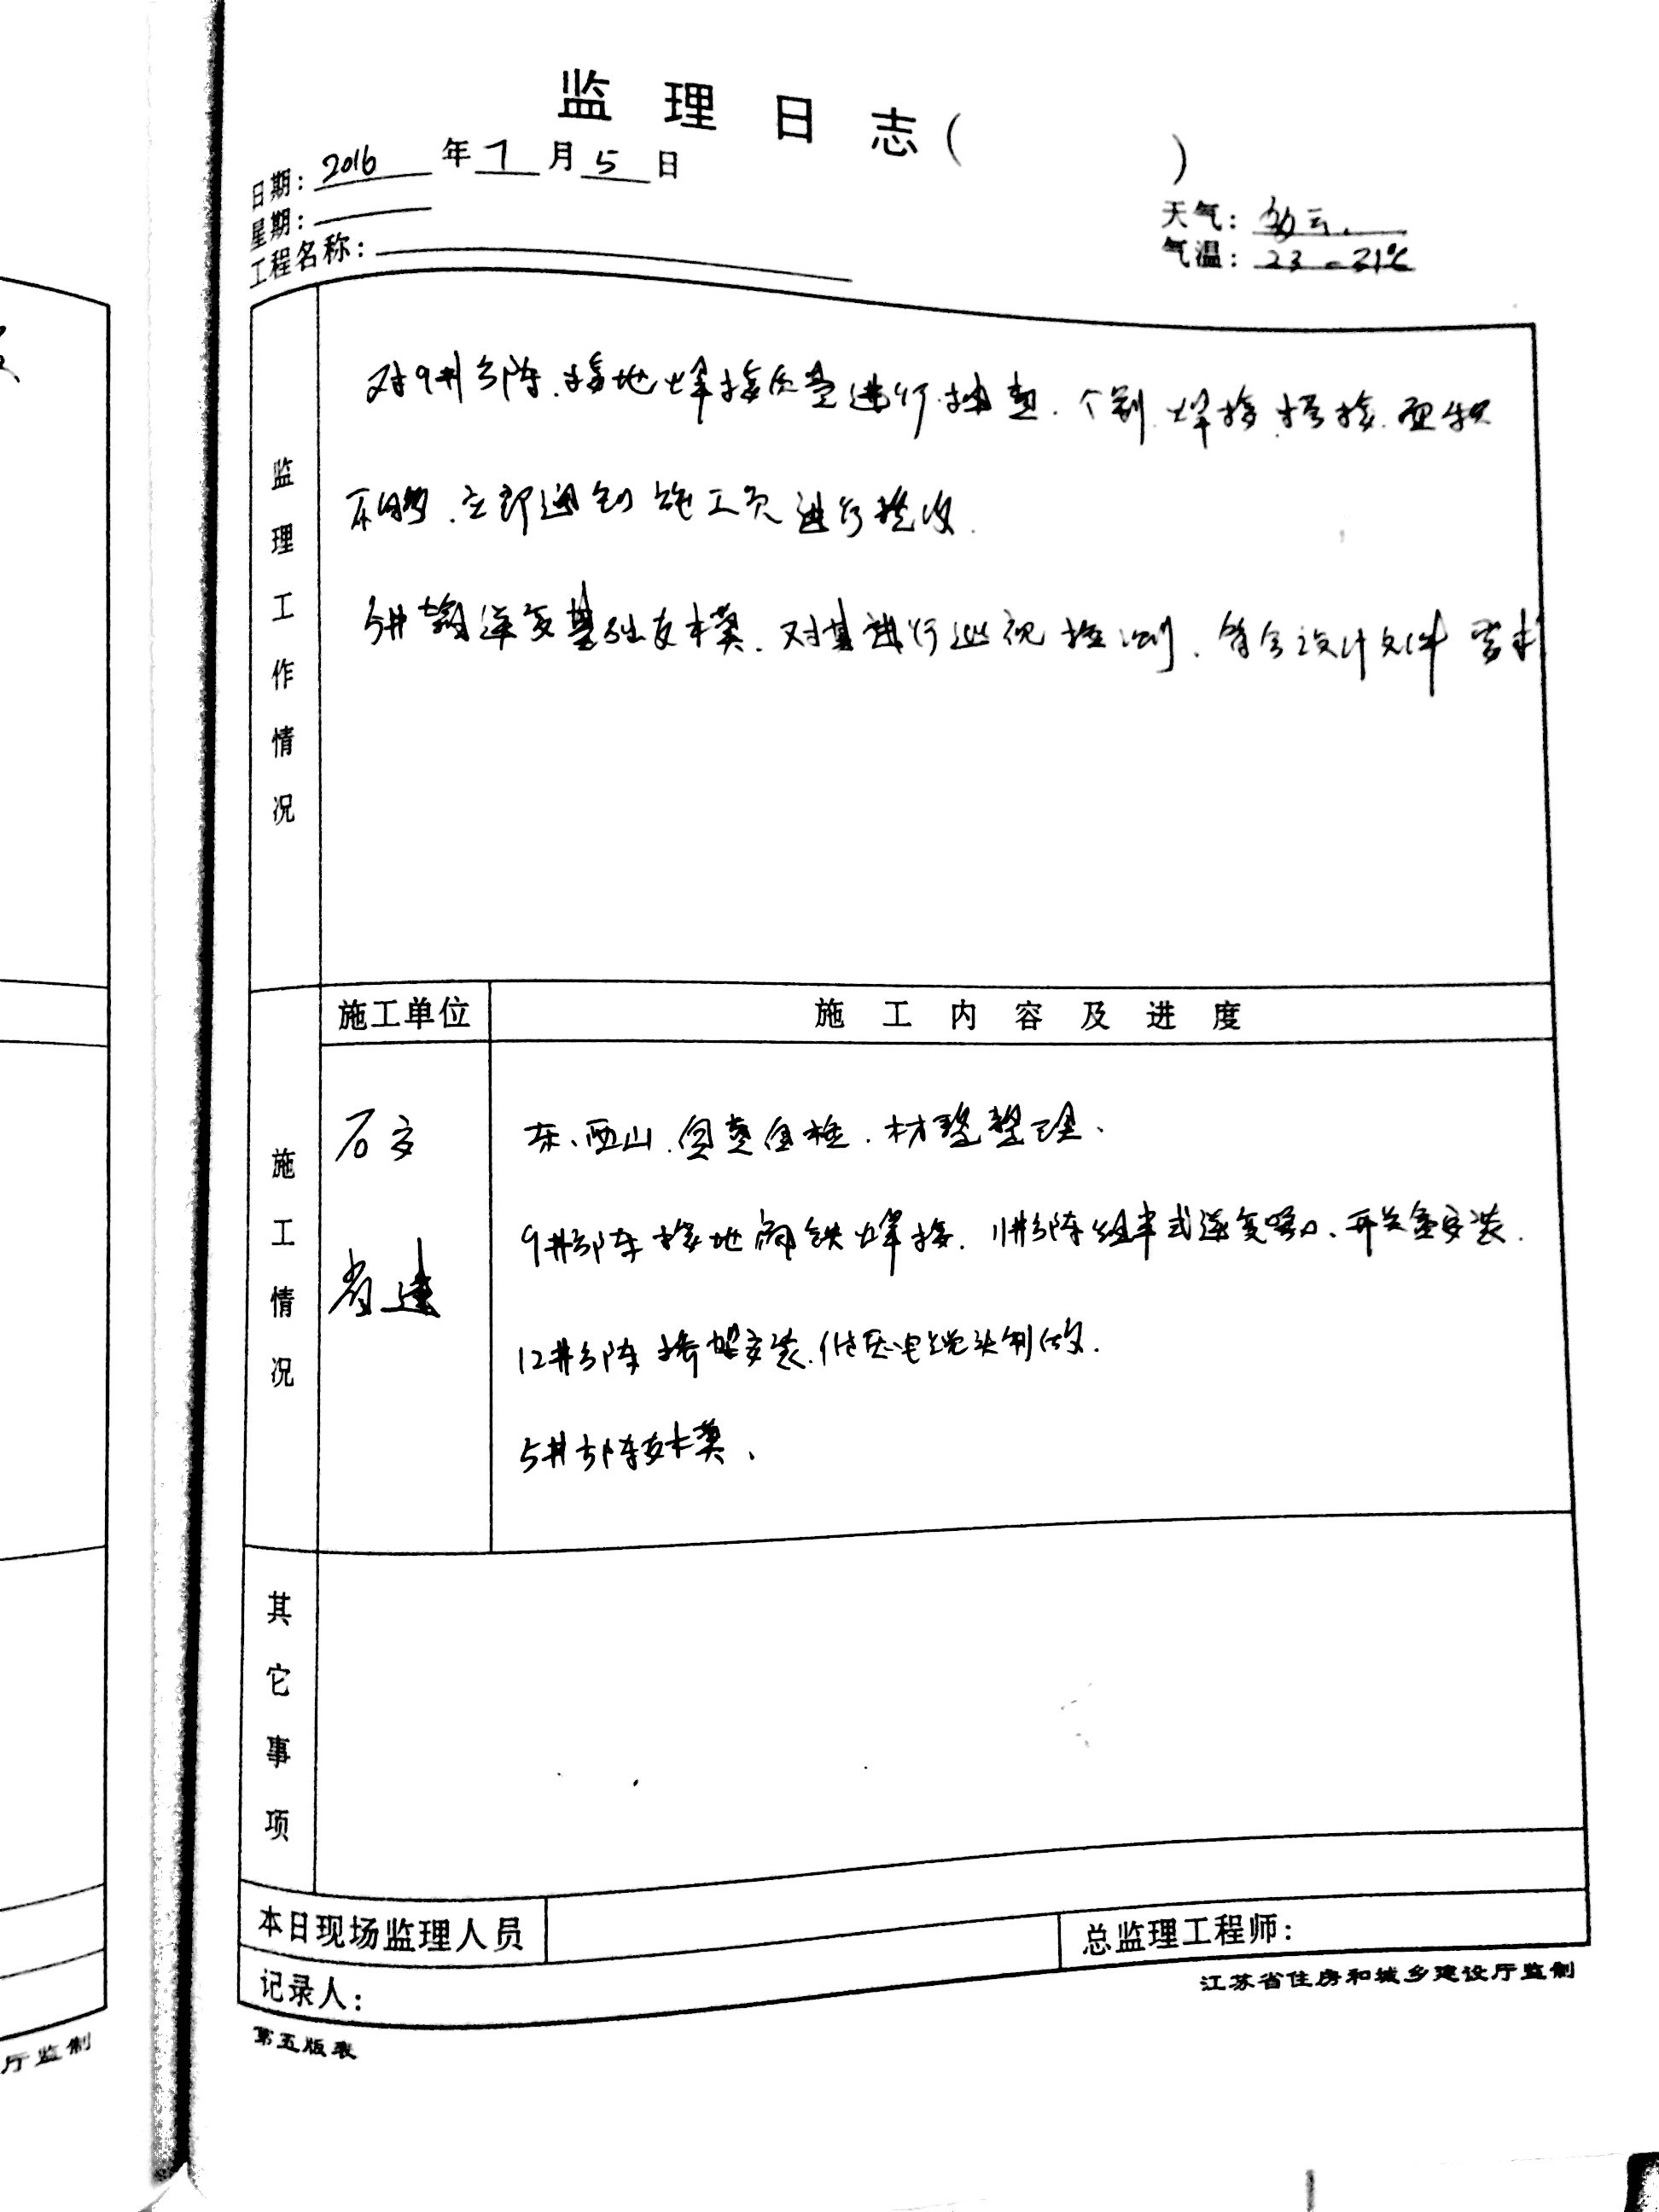 监理日志( )
日期: 2016 年 7 月 5 日
星期:
天气: 多云.
工程名称:
气温: 23-31℃
监理工作情况
对9#方阵.接地焊接质量进行抽查.个别.焊接.搭接.面积
不够.立即通知施工员进行整改.
5#箱逆变基础支木模.对其进行巡视检测.符合设计文件要求
施工情况
施工单位
施工内容及进度
石方
东、西山.自查自检.材料整理、
省建
9#方阵接地扁铁焊接.11#方阵组串式逆变器、开关盒安装.
12#方阵桥架安装.低压电缆头制做.
5#方阵支木模、
其它事项
本日现场监理人员
总监理工程师:
记录人:
江苏省住房和城乡建设厅监制
第五版表
厅监制